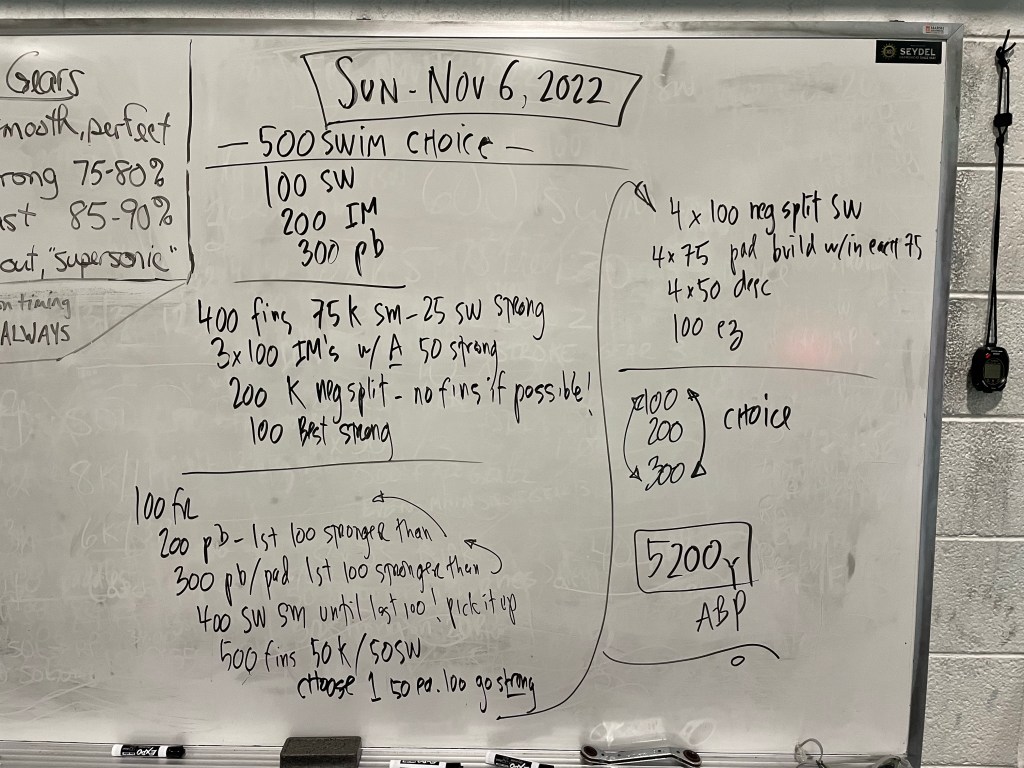 Gears
mooth, perfect
rong 75-80%
st 85-90%
out, "supersonic"
on timing
ALWAYS
SUN - NOV 6, 2022
— 500 SWIM CHOICE —
100 SW
200 IM
300 pb
400 fins 75 K sm - 25 SW strong
3x100 IM's w/ A 50 strong
200 K neg split - no fins if possible!
100 Best strong
100 FR
200 pb - 1st 100 stronger than
300 pb/pad 1st 100 stronger than
400 SW sm until last 100! pick it up
500 fins 50 K / 50 SW
choose 1 50 ea. 100 go strong
4 x 100 neg split SW
4 x 75 pad build w/in each 75
4 x 50 desc
100 ez
100
200
300
CHOICE
5200y
ABP
SEYDEL
EXPO